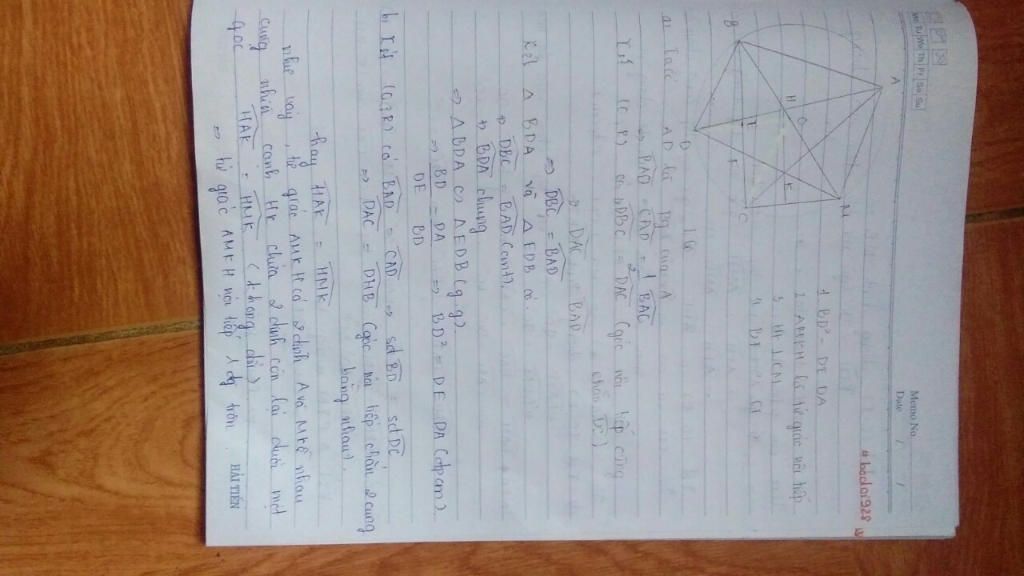 Memo No.
Date / /
Mo Tu We Th Fr Sa Su
# badao1928
A
B
C
D
M
H
O
K
F
1. BD² = DE.DA
2. AMKH là tứ giác nội tiếp
3. HK
Giải
a. Ta có AD là pg của A
⇒ BAD = CAD = 1/2 BAC
Xét (O;R) có DBC = DAC (góc nội tiếp cùng
chắn DC)
⇒ DAC = BAD
⇒ DBC = BAD
Xét Δ BDA và Δ EDB có
⇒ DBC = BAD (cmt).
⇒ BDA chung
⇒ Δ BDA ∽ Δ EDB (g.g).
⇒ BD/DE = DA/BD ⇒ BD² = DE . DA (đpcm).
b, Xét (O;R) có BAD = CAD ⇒ sđ BD = sđ DC
⇒ DAC = DMB (góc nội tiếp chắn 2 cung
bằng nhau).
hay HAK = HMK
như vậy, tứ giác AMKH có 2 đỉnh A và M kề nhau
cùng nhìn cạnh HK chứa 2 đỉnh còn lại dưới một
góc HAK = HMK (không đổi)
⇒ tứ giác AMKH nội tiếp 1 đg tròn.
HẢI TIẾN